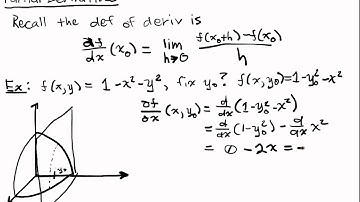 Partial Derivatives
Recall the def of deriv is
df/dx (x₀) = lim h→0 f(x₀+h)-f(x₀) / h
Ex: f(x,y) = 1-x²-y², fix y₀? f(x,y₀)=1-y₀²-x²
∂f/∂x (x,y₀) = d/dx (1-y₀²-x²)
= d/dx (1-y₀²) - d/dx x²
= 0 - 2x = -
y₀